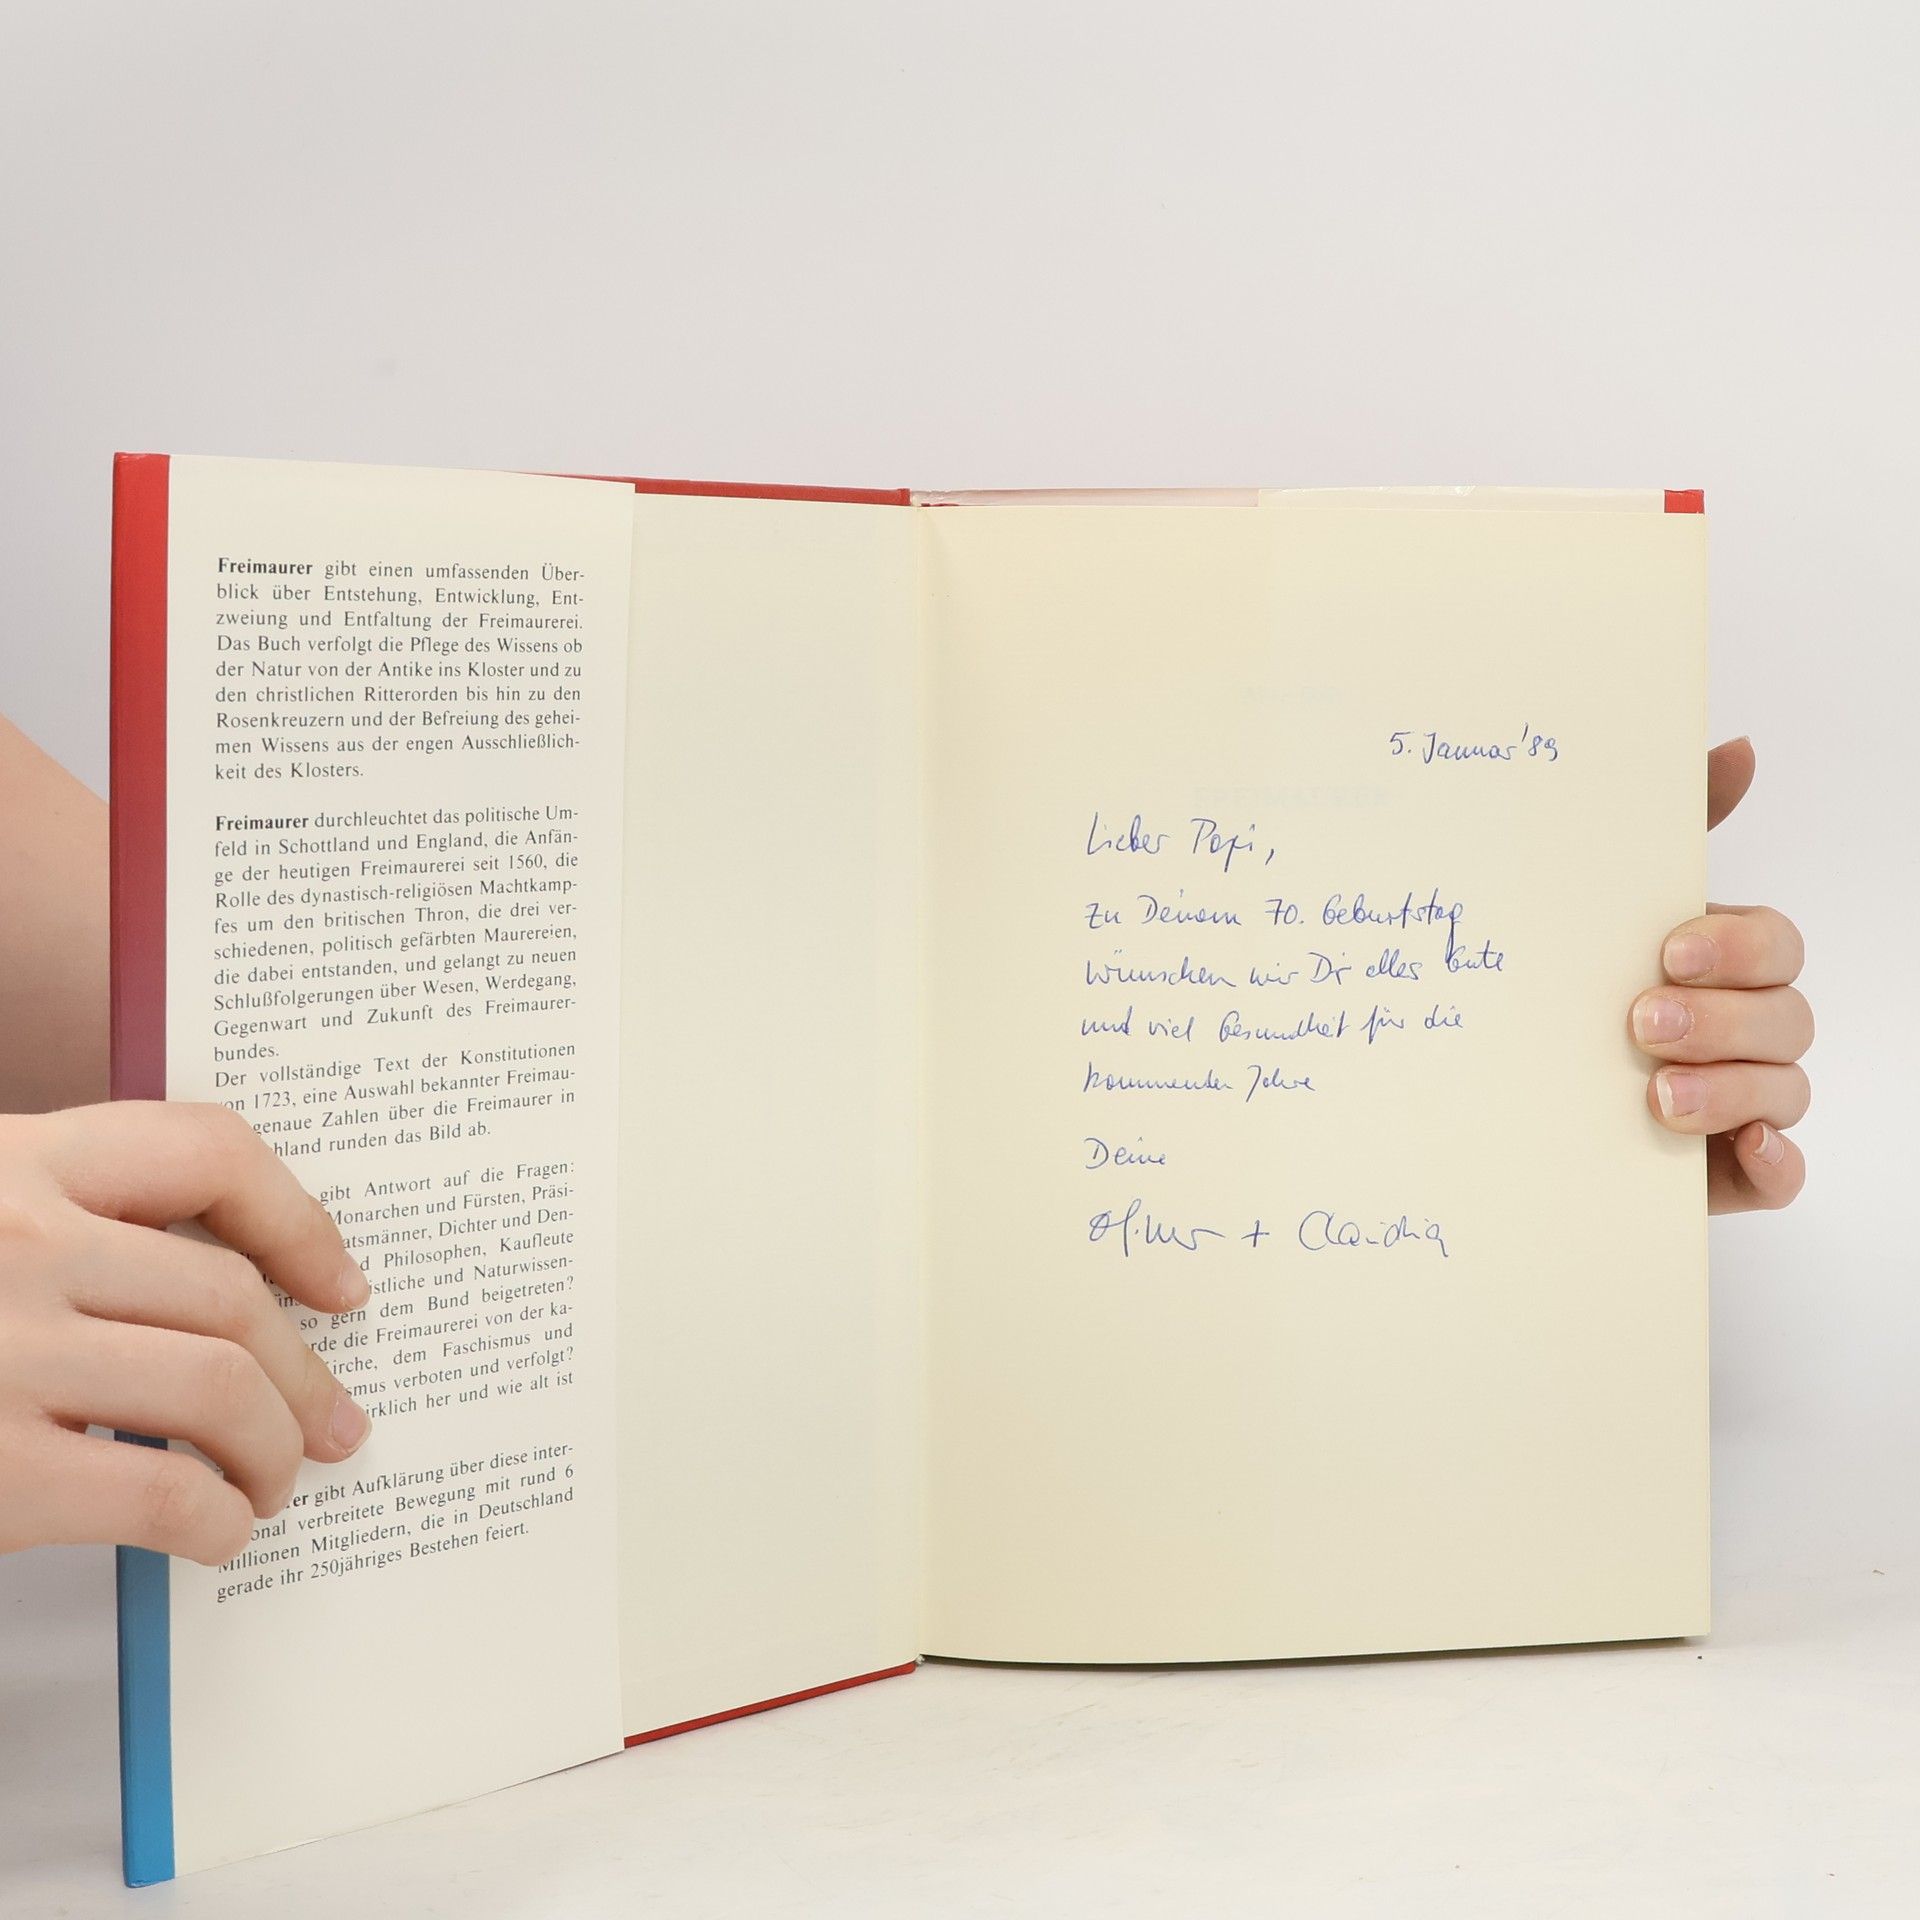 Freimaurer gibt einen umfassenden Über-
blick über Entstehung, Entwicklung, Ent-
zweiung und Entfaltung der Freimaurerei.
Das Buch verfolgt die Pflege des Wissens ob
der Natur von der Antike ins Kloster und zu
den christlichen Ritterorden bis hin zu den
Rosenkreuzern und der Befreiung des gehei-
men Wissens aus der engen Ausschließlich-
keit des Klosters.
Freimaurer durchleuchtet das politische Um-
feld in Schottland und England, die Anfän-
ge der heutigen Freimaurerei seit 1560, die
Rolle des dynastisch-religiösen Machtkamp-
fes um den britischen Thron, die drei ver-
schiedenen, politisch gefärbten Maurereien,
die dabei entstanden, und gelangt zu neuen
Schlußfolgerungen über Wesen, Werdegang,
Gegenwart und Zukunft des Freimaurer-
bundes.
Der vollständige Text der Konstitutionen
von 1723, eine Auswahl bekannter Freimau-
genaue Zahlen über die Freimaurer in
hland runden das Bild ab.
gibt Antwort auf die Fragen:
Monarchen und Fürsten, Präsi-
atsmänner, Dichter und Den-
d Philosophen, Kaufleute
istliche und Naturwissen-
so gern dem Bund beigetreten?
rde die Freimaurerei von der ka-
Kirche, dem Faschismus und
ismus verboten und verfolgt?
irklich her und wie alt ist
er gibt Aufklärung über diese inter-
onal verbreitete Bewegung mit rund 6
Millionen Mitgliedern, die in Deutschland
gerade ihr 250jähriges Bestehen feiert.
5. Januar '89
Lieber Papi,
zu Deinem 70. Geburtstag
wünschen wir Dir alles Gute
und viel Gesundheit für die
kommenden Jahre
Deine
+ Claudia
FREIMAURER